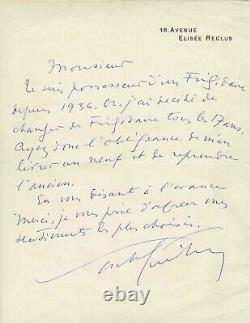 18, AVENUE
ELISÉE RECLUS
Monsieur
Je suis possesseur d'un Frigidaire
depuis 1936. Or, j'ai décidé de
changer de Frigidaire tous les 17 ans.
Ayez donc l'obligeance de m'en
livrer un neuf et de reprendre
l'ancien.
En vous disant à l'avance
Merci, je vous prie d'agréer mes
sentiments les plus choisis.
Sacha Guitry
ebay